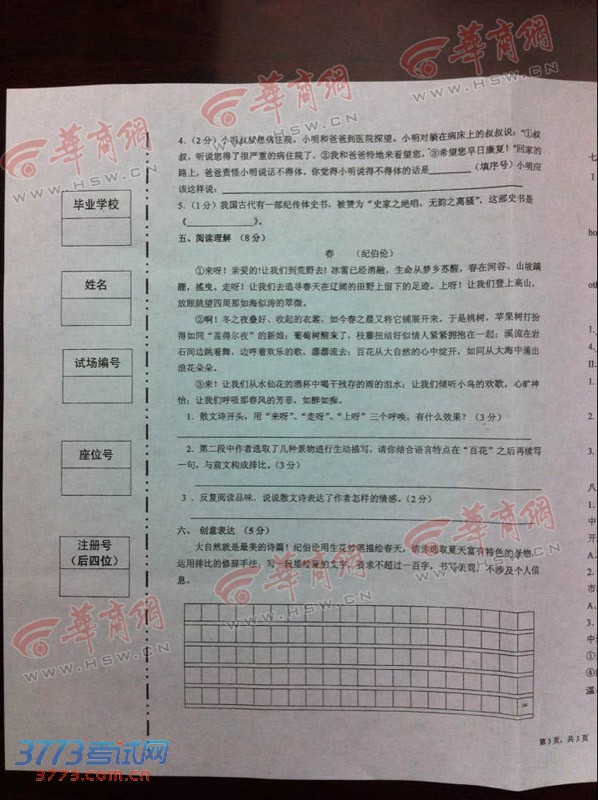 华商网
WWW.HSW.CN
4.(2分)小明叔叔患病住院。小明和爸爸到医院探望。小明对躺在病床上的叔叔说:"①叔
叔,听说您得了很严重的病住院了。②我和爸爸特地来看望您,③希望您早日康复!"回家的
路上,爸爸责怪小明说话不得体。你觉得小明说得不得体的话是(填序号)小明应
该这样说:
5.(1分)我国古代有一部纪传体史书,被赞为"史家之绝唱,无韵之离骚",这部史书是
《》。
五、阅读理解 (8分)
春 (纪伯伦)
①来呀!亲爱的!让我们到荒野去!冰雪已经消融,生命从梦乡苏醒,春在河谷、山坡蹒
跚,摇曳。走呀!让我们去追寻春天在辽阔的田野上留下的足迹。上呀!让我们登上高山,
放眼眺望四周那如海似涛的翠微。
②啊!冬之夜叠好、收起的衣裳,如今春之晨又将它铺展开来。于是桃树,苹果树打扮
得如同"盖得尔夜"的新娘;葡萄树醒来了,枝藤扭结好似情人紧紧拥抱在一起;溪流在岩
石间边跳着舞,边哼着欢乐的歌,潺潺流去;百花从大自然的心中绽开,如同从大海中涌出
浪花朵朵。
③来!让我们从水仙花的酒杯中喝干残存的雨的泪水;让我们倾听小鸟的欢歌,心旷神
怡;让我们呼吸那春风的芳菲,如醉如痴。
1.散文诗开头,用"来呀"、"走呀"、"上呀"三个呼唤,有什么效果?(3分)
2.第二段中作者选取了几种景物进行生动描写,请你结合语言特点在"百花"之后再续写
一句,与前文构成排比。(3分)
3、反复阅读品味,说说散文诗表达了作者怎样的情感。(2分)
六、创意表达(5分)
大自然就是最美的诗篇!纪伯伦用生花妙笔描绘春天。请你选取夏天富有特色的景物,
运用排比的修辞手法,写一段描绘夏的文字。要求不超过一百字,书写美观,不涉及个人信
息。
100
第3页,共3页
毕业学校
姓名
试场编号
座位号
注册号
(后四位)
3773考试网
3773.com.cn